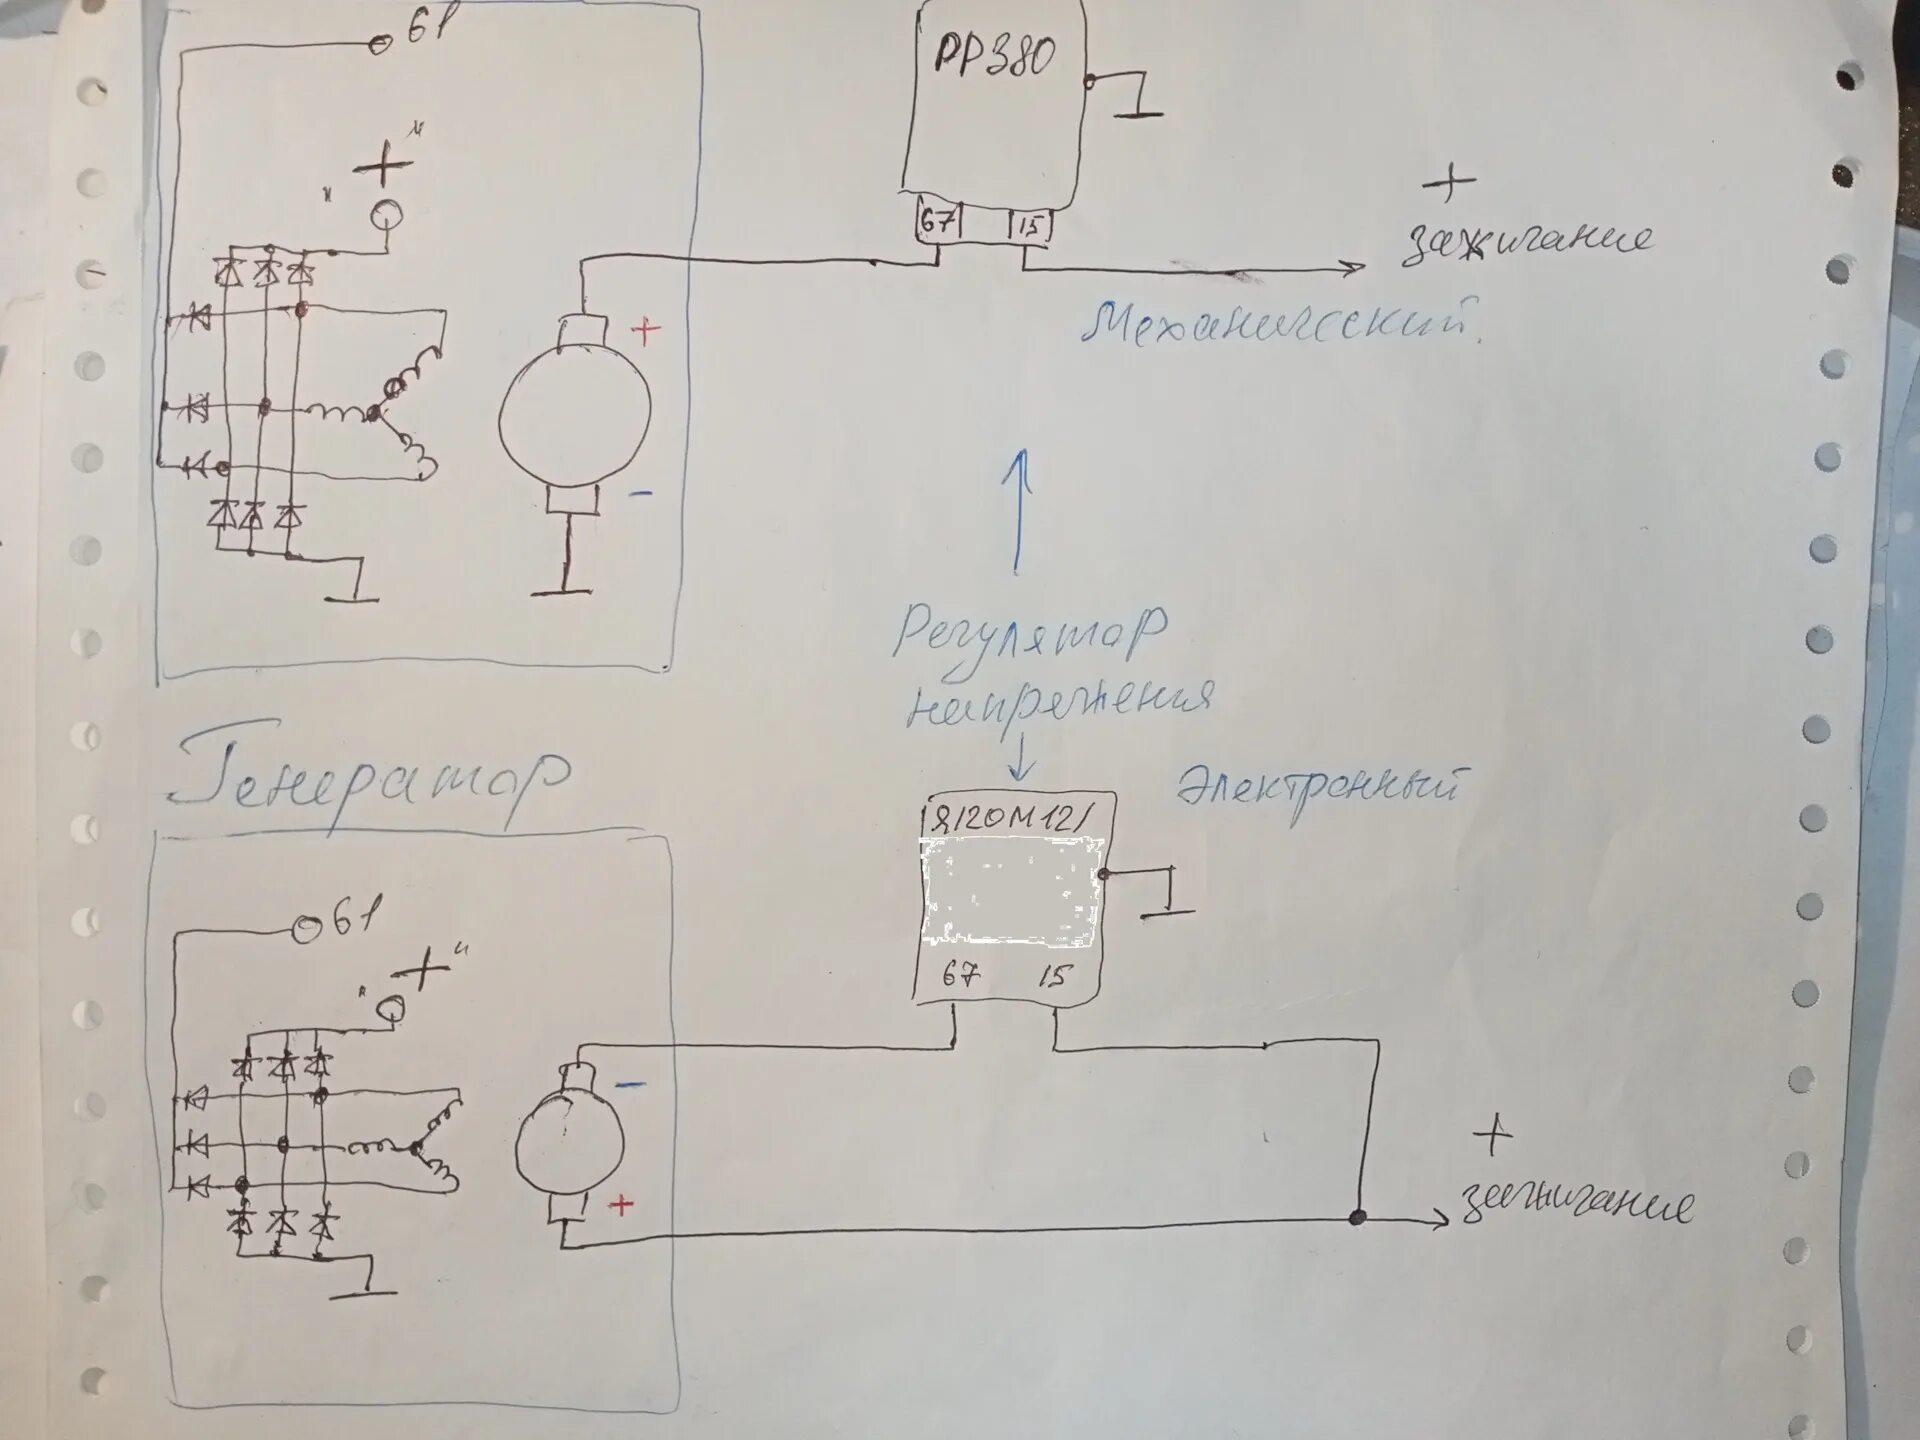 61
РР380
" + "
+
зажигание
67 15
+
Механический
-
Регулятор
напряжения
Генератор
Электронный
Я120М12I
61
" + "
67 15
-
+
+
зажигание